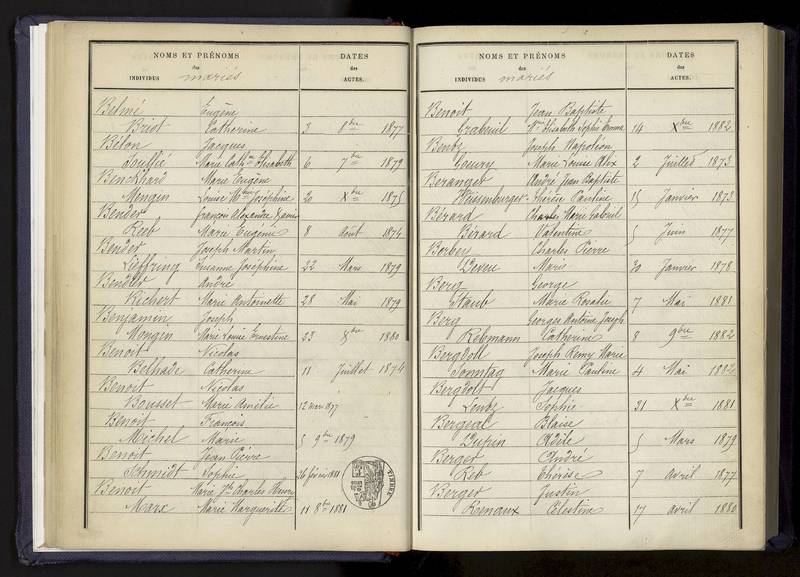 NOMS ET PRÉNOMS DATES
des des
INDIVIDUS mariés ACTES.
Belmé Eugène
Briot Catherine 3 8bre 1877
Bélon Jacques
Loullié Marie Cathne Elisabeth 6 7bre 1879
Benckhard Marie Eugène
Mengin Louise Joséphine 20 Xbre 1875
Bender François Alexandre Xavier
Reeb Marie Eugénie 8 Août 1874
Bender Joseph Martin
Lieffring Suzanne Joséphine 22 Mars 1879
Bender André
Richert Marie Antoinette 28 Mai 1879
Benjamin Joseph
Mongin Marie Louise Ernestine 23 Xbre 1880
Benoit Nicolas
Belhade Catherine 11 Juillet 1874
Benoit Nicolas
Bousset Marie Amélie 12 mars 1877
Benoit François
Meichel Marie 5 9bre 1879
Benoit Jean Pierre
Schmidt Sophie 26 février 1881
Benoit Marie Jh Charles Henri
Marx Marie Marguerite 11 8bre 1881
TIMBRE
NOMS ET PRÉNOMS DATES
des des
INDIVIDUS mariés ACTES.
Benoit Jean Baptiste
Grabeuil Elisabeth Sophie Emma 14 Xbre 1882
Bentz Joseph Napoléon
Geury Marie Louise Alix 2 Juillet 1873
Béranger André Jean Baptiste
Weissenburger Thérèse Pauline 15 Janvier 1873
Bérard Charles Marie Gabriel
Bérard Valentine 5 Juin 1877
Berber Charles Pierre
Deveu Marie 30 Janvier 1878
Berg George
Staube Marie Rosalie 7 Mai 1881
Berg Georges Antoine Joseph
Rebmann Catherine 8 9bre 1882
Bergdoll Joseph Remy Marie
Sonntag Marie Pauline 4 Mai 1882
Bergdolt Jacques
Lentz Sophie 31 Xbre 1881
Bergeat Blaise
Dupin Adèle 5 Mars 1879
Berger André
Reb Thérèse 7 avril 1877
Berger Justin
Renaux Célestine 17 avril 1880